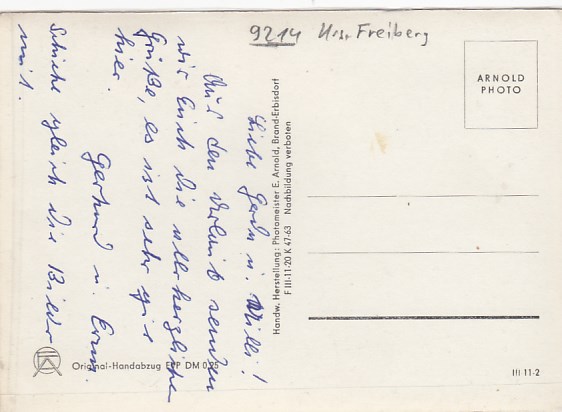 9214 Krs. Freiberg
ARNOLD
PHOTO
Liebe Gerda u. Willi!
Aus den Urlaub senden
wir Euch die allerherzlichsten
Grüße, es ist sehr gut
hier.
Gerhard u. Erna.
Schicke gleich die Bilder
mit.
Handw. Herstellung: Photomeister E. Arnold, Brand-Erbisdorf
F III-11-20 K 47-63 Nachbildung verboten
Original-Handabzug EVP DM 0,25
III 11-2